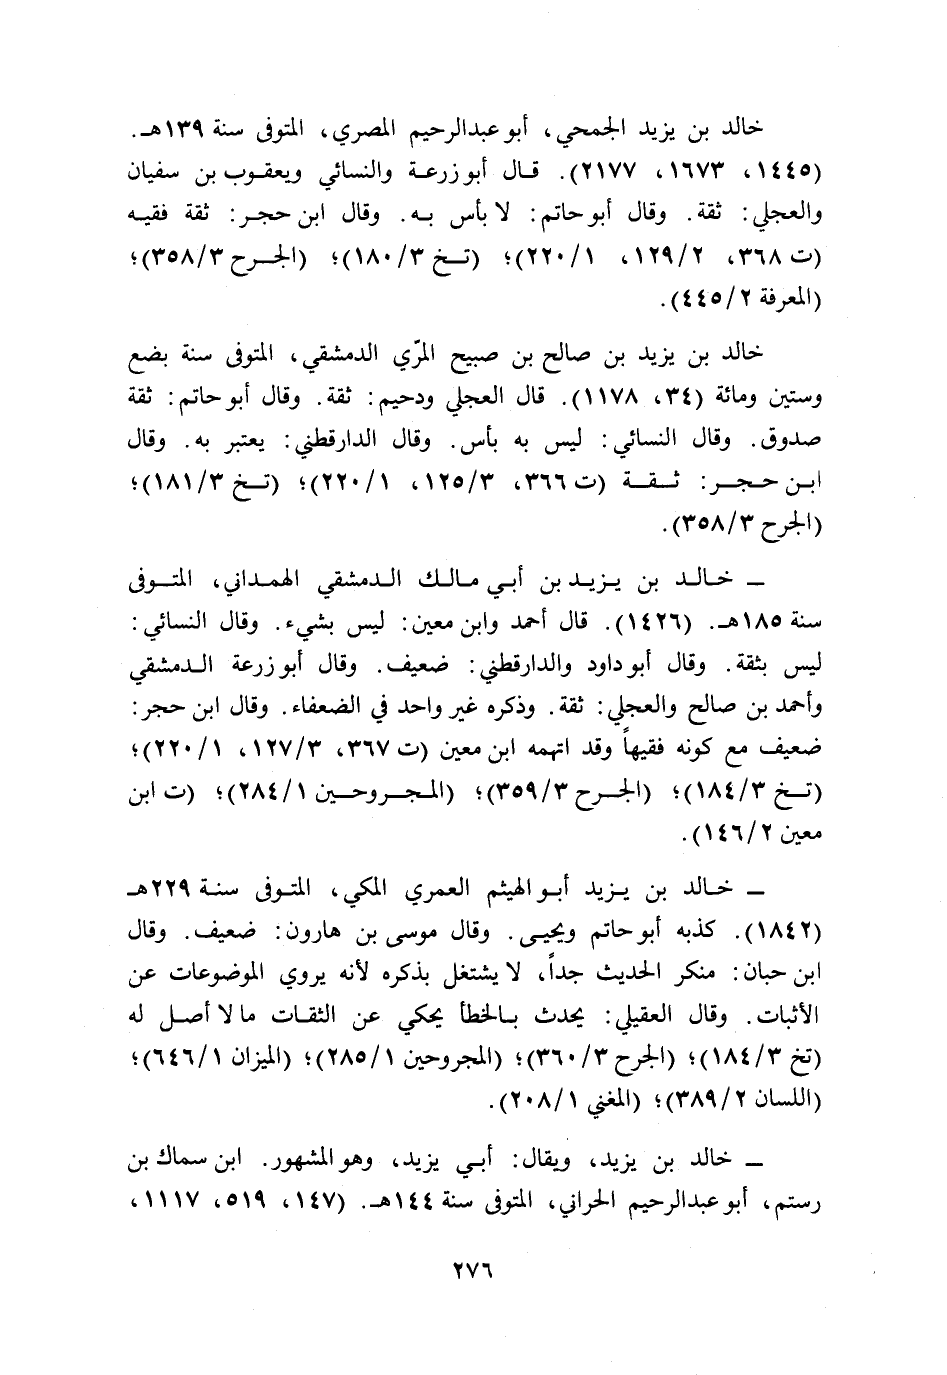 خالد بن يزيد الجمحي، أبو عبدالرحيم المصري، المتوفى سنة ١٣٩هـ.
(١٤٤٥، ١٦٧٣، ٢١٧٧). قال أبو زرعة والنسائي ويعقوب بن سفيان
والعجلي: ثقة. وقال أبو حاتم: لا بأس به. وقال ابن حجر: ثقة فقيه
(ت ٣٦٨، ١٢٩/٢، ٢٢٠/١)؛ (تخ ١٨٠/٣)؛ (الجرح ٣٥٨/٣)؛
(المعرفة ٤٤٥/٢).
خالد بن يزيد بن صالح بن صبيح المرّي الدمشقي، المتوفى سنة بضع
وستين ومائة (٣٤، ١١٧٨). قال العجلي ودحيم: ثقة. وقال أبو حاتم: ثقة
صدوق. وقال النسائي: ليس به بأس. وقال الدارقطني: يعتبر به. وقال
ابن حجر: ثقة (ت ٣٦٦، ١٢٥/٣، ٢٢٠/١)؛ (تخ ١٨١/٣)؛
(الجرح ٣٥٨/٣).
ـ خالد بن يزيد بن أبي مالك الدمشقي الهمداني، المتوفى
سنة ١٨٥هـ. (١٤٢٦). قال أحمد وابن معين: ليس بشيء. وقال النسائي:
ليس بثقة. وقال أبو داود والدارقطني: ضعيف. وقال أبو زرعة الدمشقي
وأحمد بن صالح والعجلي: ثقة. وذكره غير واحد في الضعفاء. وقال ابن حجر:
ضعيف مع كونه فقيهاً وقد اتهمه ابن معين (ت ٣٦٧، ١٢٧/٣، ٢٢٠/١)؛
(تخ ١٨٤/٣)؛ (الجرح ٣٥٩/٣)؛ (المجروحين ٢٨٤/١)؛ (ت ابن
معين ١٤٦/٢).
ـ خالد بن يزيد أبو الهيثم العمري المكي، المتوفى سنة ٢٢٩هـ
(١٨٤٢). كذبه أبو حاتم ويحيى. وقال موسى بن هارون: ضعيف. وقال
ابن حبان: منكر الحديث جداً، لا يشتغل بذكره لأنه يروي الموضوعات عن
الأثبات. وقال العقيلي: يحدث بالخطأ يحكي عن الثقات ما لا أصل له
(تخ ١٨٤/٣)؛ (الجرح ٣٦٠/٣)؛ (المجروحين ٢٨٥/١)؛ (الميزان ٦٤٦/١)؛
(اللسان ٣٨٩/٢)؛ (المغني ٢٠٨/١).
ـ خالد بن يزيد، ويقال: أبي يزيد، وهو المشهور. ابن سماك بن
رستم، أبو عبدالرحيم الحراني، المتوفى سنة ١٤٤هـ. (١٤٧، ٥١٩، ١١١٧،
٢٧٦